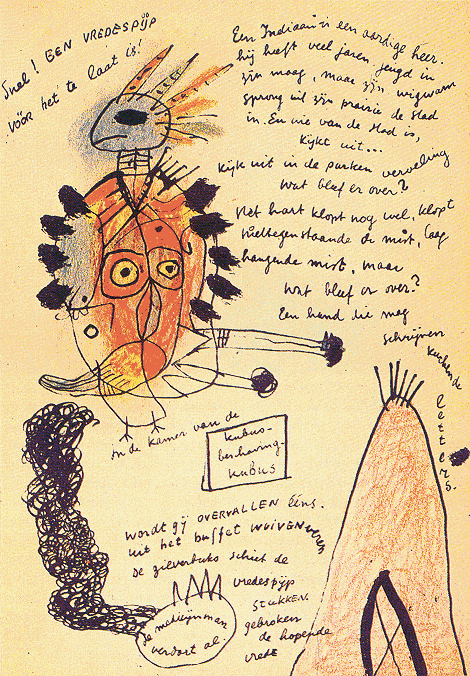 Snel! EEN VREDESPIJP
VÓÓR het te laat is!
Een Indiaan is een aardige heer.
hij heeft veel jaren jeugd in
zijn maag, maar zijn wigwam
sprong uit zijn prairie de stad
in. En wie van de stad is,
kijkt uit...
Kijk uit in de parken verveling
Wat bleef er over?
Het hart klopt nog wel, klopt
de mist, laag
hangende mist, maar
Wat bleef er over?
Een hand die mag
schrijven
letters.
In de kamer van de
kubus-
beschaving-
kubus
Wordt gij OVERVALLEN ééns.
uit het buffet WUIVEN
De zilverbuks schiet de
vredespijp
STUKKEN.
gebroken
de hopende
vrede
de medicijnman
verdort al.